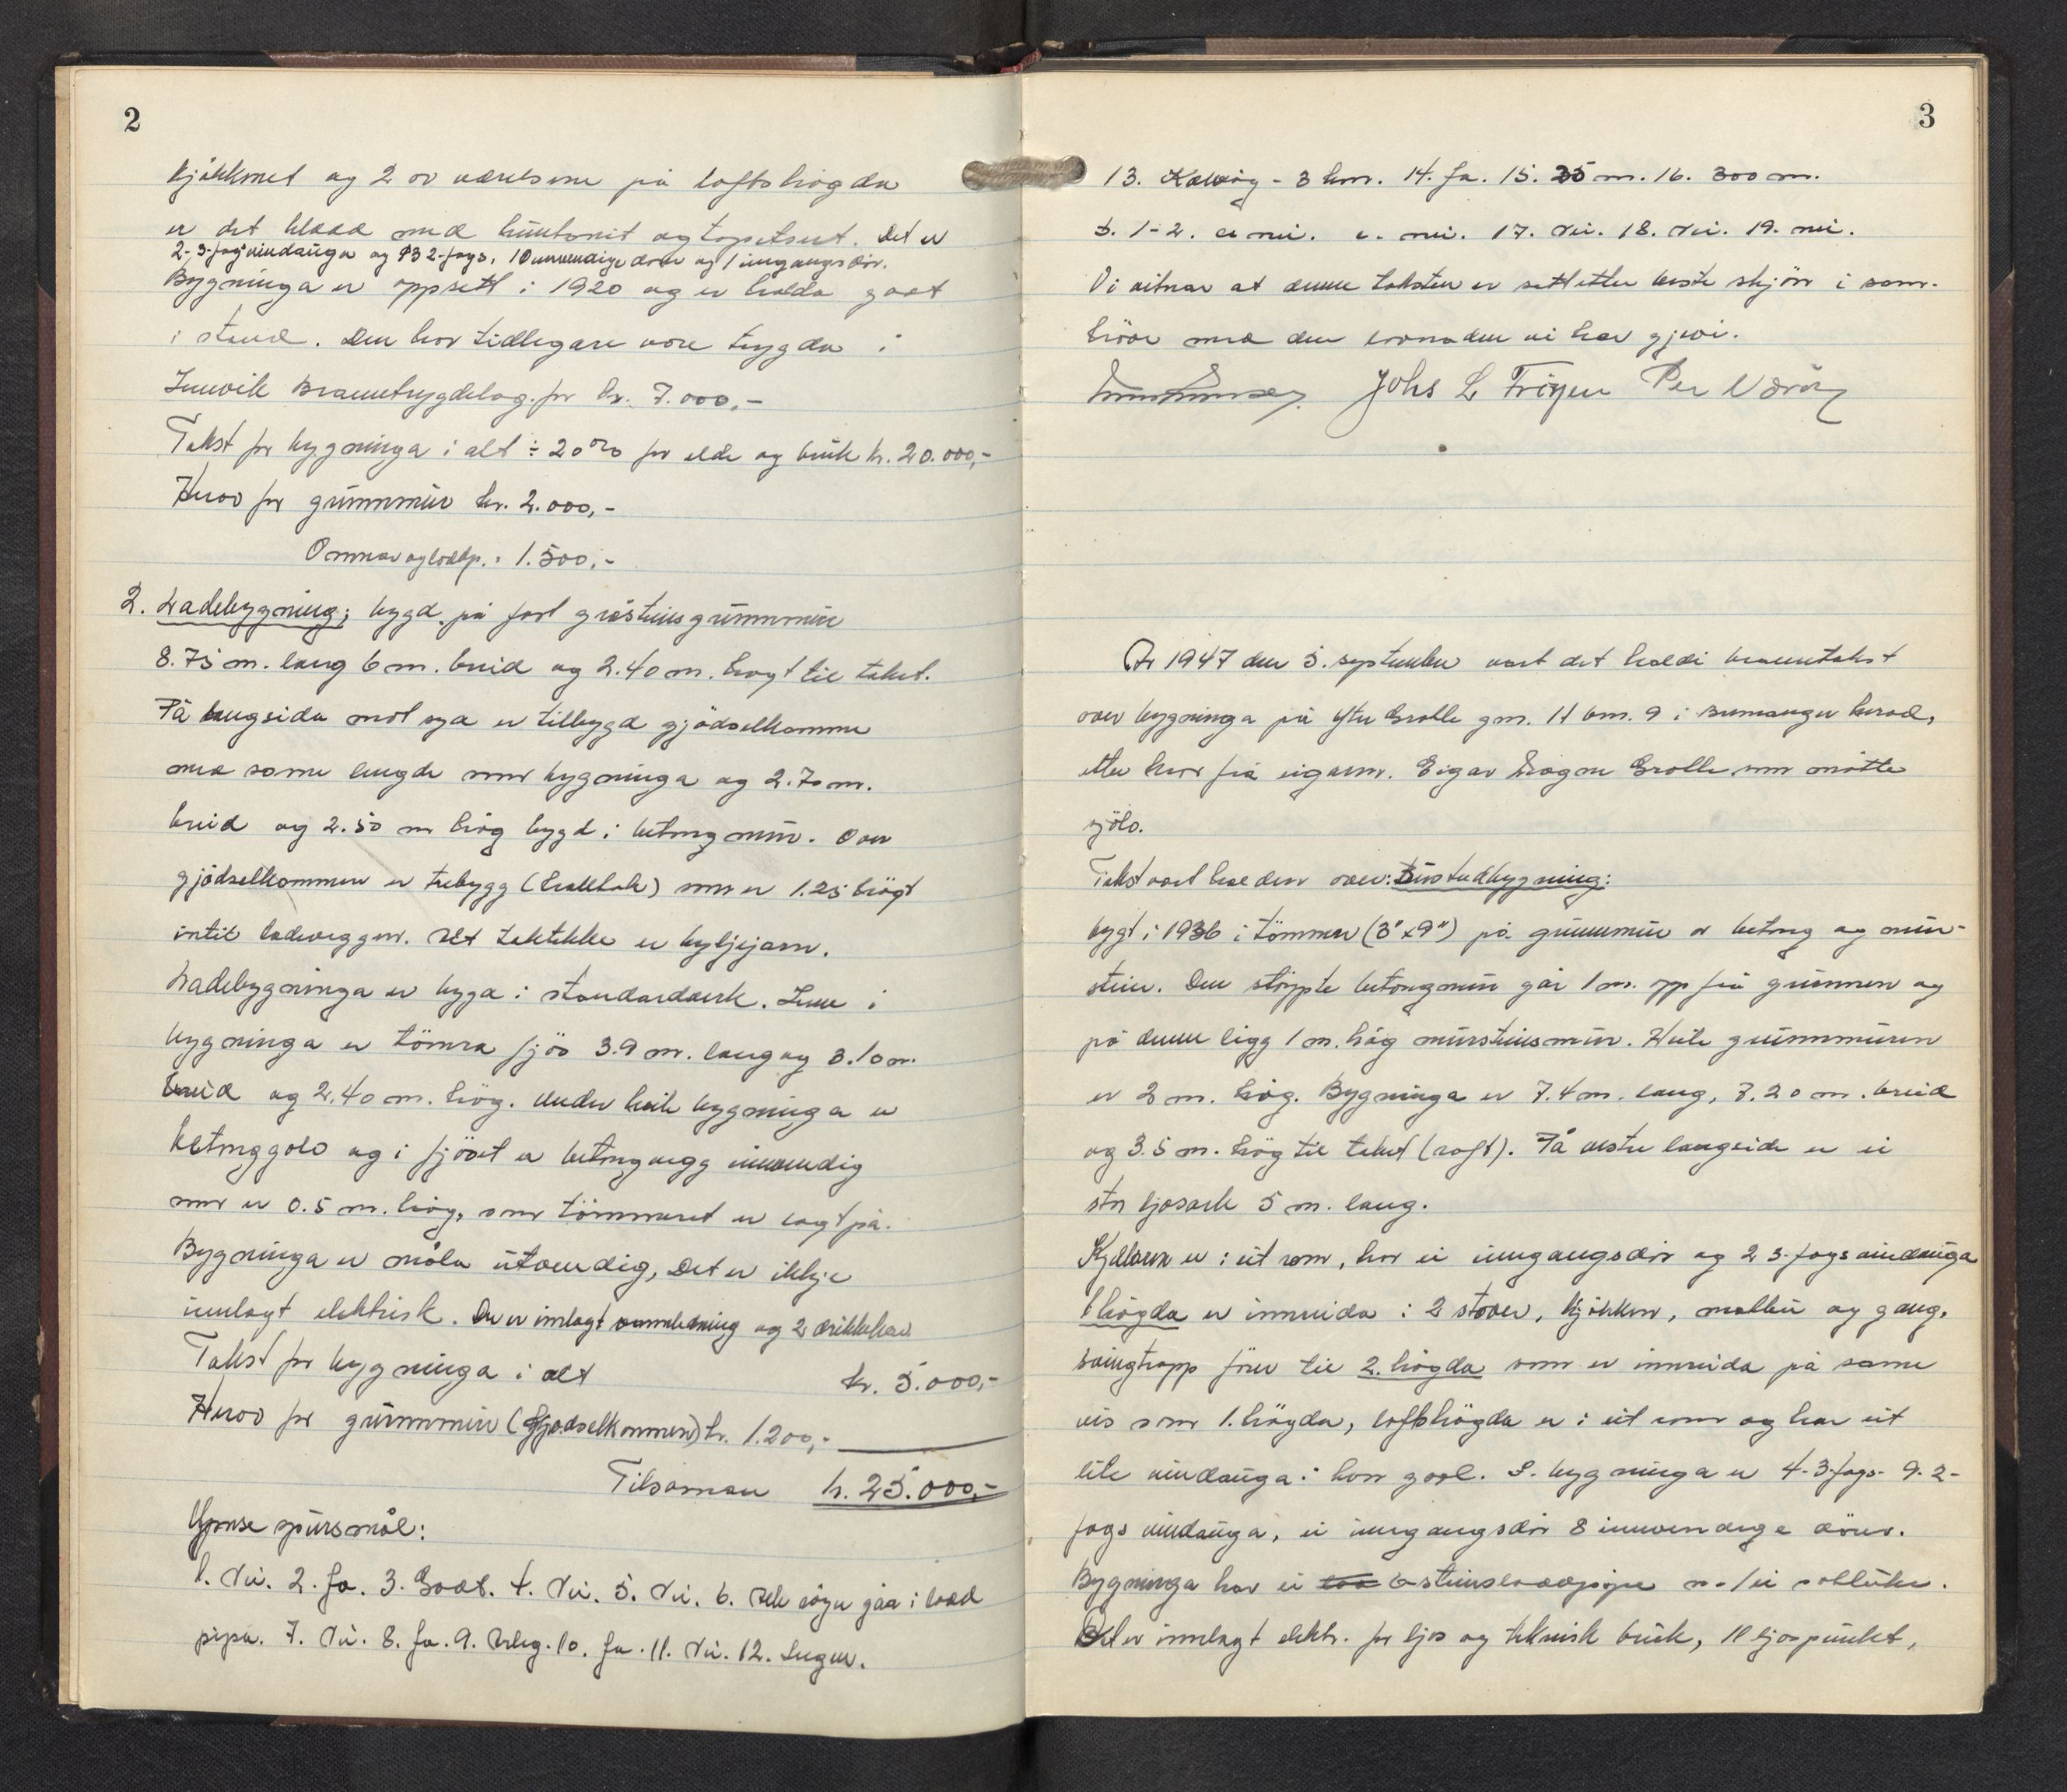 2
kjøkkenet og 2 av værelsene på loftshøgda
er det kledd med huntonit og tapetsert. Det er
2-3-fag vindauga og 13 2-fags, 10 innvendige dører og 1 inngangsdør.
Bygninga er oppsett i 1920 og er halde godt
i stand. Den har tidlegare vore trygda i
Innvik Branntrygdelag for kr. 7.000,-
Takst for bygninga i alt ÷ 20% for elde og bruk kr. 20.000,-
Herav for grunnmur kr. 2.000,-
Omnar og loddp. " 1.500,-
2. Ladebygning; bygd på fast gråsteinsgrunnmur
8.75 m. lang 6 m. breid og 2.40 m. høgt til taket.
På langsida mot sya er tilbygd gjødselkomme
med same lengde som bygninga og 2.70 m.
breid og 2.50 m høg bygd i betongmur. Over
gjødselkommen er trebygg (halltak) som er 1.25 høgt
intil ladeveggen. Alt taktekke er bylgjejarn.
Ladebygninga er bygd i standardverk. Inne i
bygninga er tømra fjøs 3.9 m. lang og 3.10 m.
breid og 2.40 m. høg. Under heile bygninga er
betonggolv og i fjøset er betongvegg innvendig
som er 0.5 m. høg, som tømmeret er lagt på.
Bygninga er måla utvendig, Det er ikkje
innlagt elektrisk. Der er innlagt vannledning og 2 drikkekar
Takst for bygninga i alt kr. 5.000,-
Herav for grunnmur (Gjødselkommen) kr. 1.200,-
Tilsaman kr. 25.000,-
Ymse spursmål:
1. Nei. 2. Ja. 3. Godt. 4. Nei. 5. Nei. 6. Alle røyr går i lodd
pipa. 7. Nei. 8. Ja. 9. Urleg. 10. Ja. 11. Nei. 12. Ingen.
3
13. Kalvåg - 3 km. 14. Ja. 15. 35 m. 16. 300 m.
b. 1-2. d nei. e. nei. 17. Nei. 18. Nei. 19. nei.
Vi vitnar at denne taksten er sett etter beste skjøn i sam-
høve med den kravnaden vi har gjevi.
Johs L Frøyen Per Nærøy
År 1947 den 5. september vart det haldi branntakst
over bygninga på Ytre Grolle gnr. 11 bnr. 9 i Bremanger herad,
etter krav frå eigaren. Eigar Magne Grolle som møtte
sjølv.
Takst vart halden over: Bustadbygning:
bygt i 1936 i tømmer (3" x 9") på grunnmur av betong og mur-
stein. Den støypte betongmur går 1 m. opp frå grunnen og
på denne ligg 1 m. høg mursteinsmur. Heile grunnmuren
er 2 m. høg. Bygninga er 7.4 m. lang, 7.20 m. breid
og 3.5 m. høg til taket (raft). På vestre langside er ei
stor ljosark 5 m. lang.
Kjellaren er i eit rom, har ei inngangsdør og 2 3-fags vindauga
1 høgda er innreida i 2 stover, kjøkken, matbu og gang,
Svingtrapp fører til 2. høgda som er innreida på same
vis som 1. høgda, loftshøgda er i eit rom og har eit
lite vindauga i kvar gavl. I bygninga er 4-3-fags- 9-2-
fags vindauga, ei inngangsdør 8 innvendige dører.
Bygninga har ei 6-steinsloddpipe m. 1 ei sotluke.
Det er innlagt elektr. for ljos og teknisk bruk, 11 ljospunkt,